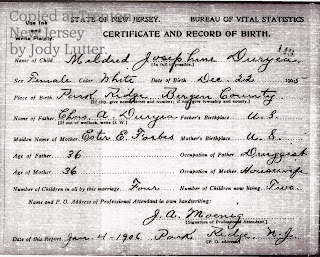 Copied at
New Jersey
by Jody Lutter
Use Ink
and
Write Plainly.
STATE OF NEW JERSEY. BUREAU OF VITAL STATISTICS
CERTIFICATE AND RECORD OF BIRTH.
Name of Child Mildred Josephine Duryea
Sex Female Color White Date of Birth Dec. 22 1905
Place of Birth Park Ridge, Bergen County
Name of Father Chas. A. Duryea Father's Birthplace U. S.
Maiden Name of Mother Ester E. Forbes Mother's Birthplace U. S.
Age of Father 36 Occupation of Father Druggist
Age of Mother 36 Occupation of Mother Housewife
Number of Children in all by this marriage, Four Number of Children now living Two.
Name and P. O. Address of Professional Attendant in own handwriting:
J. A. Moenig
[Signature of Professional Attendant.]
Date of this Report Jan. 4 - 1906 Park Ridge, N. J.
[P. O. address]